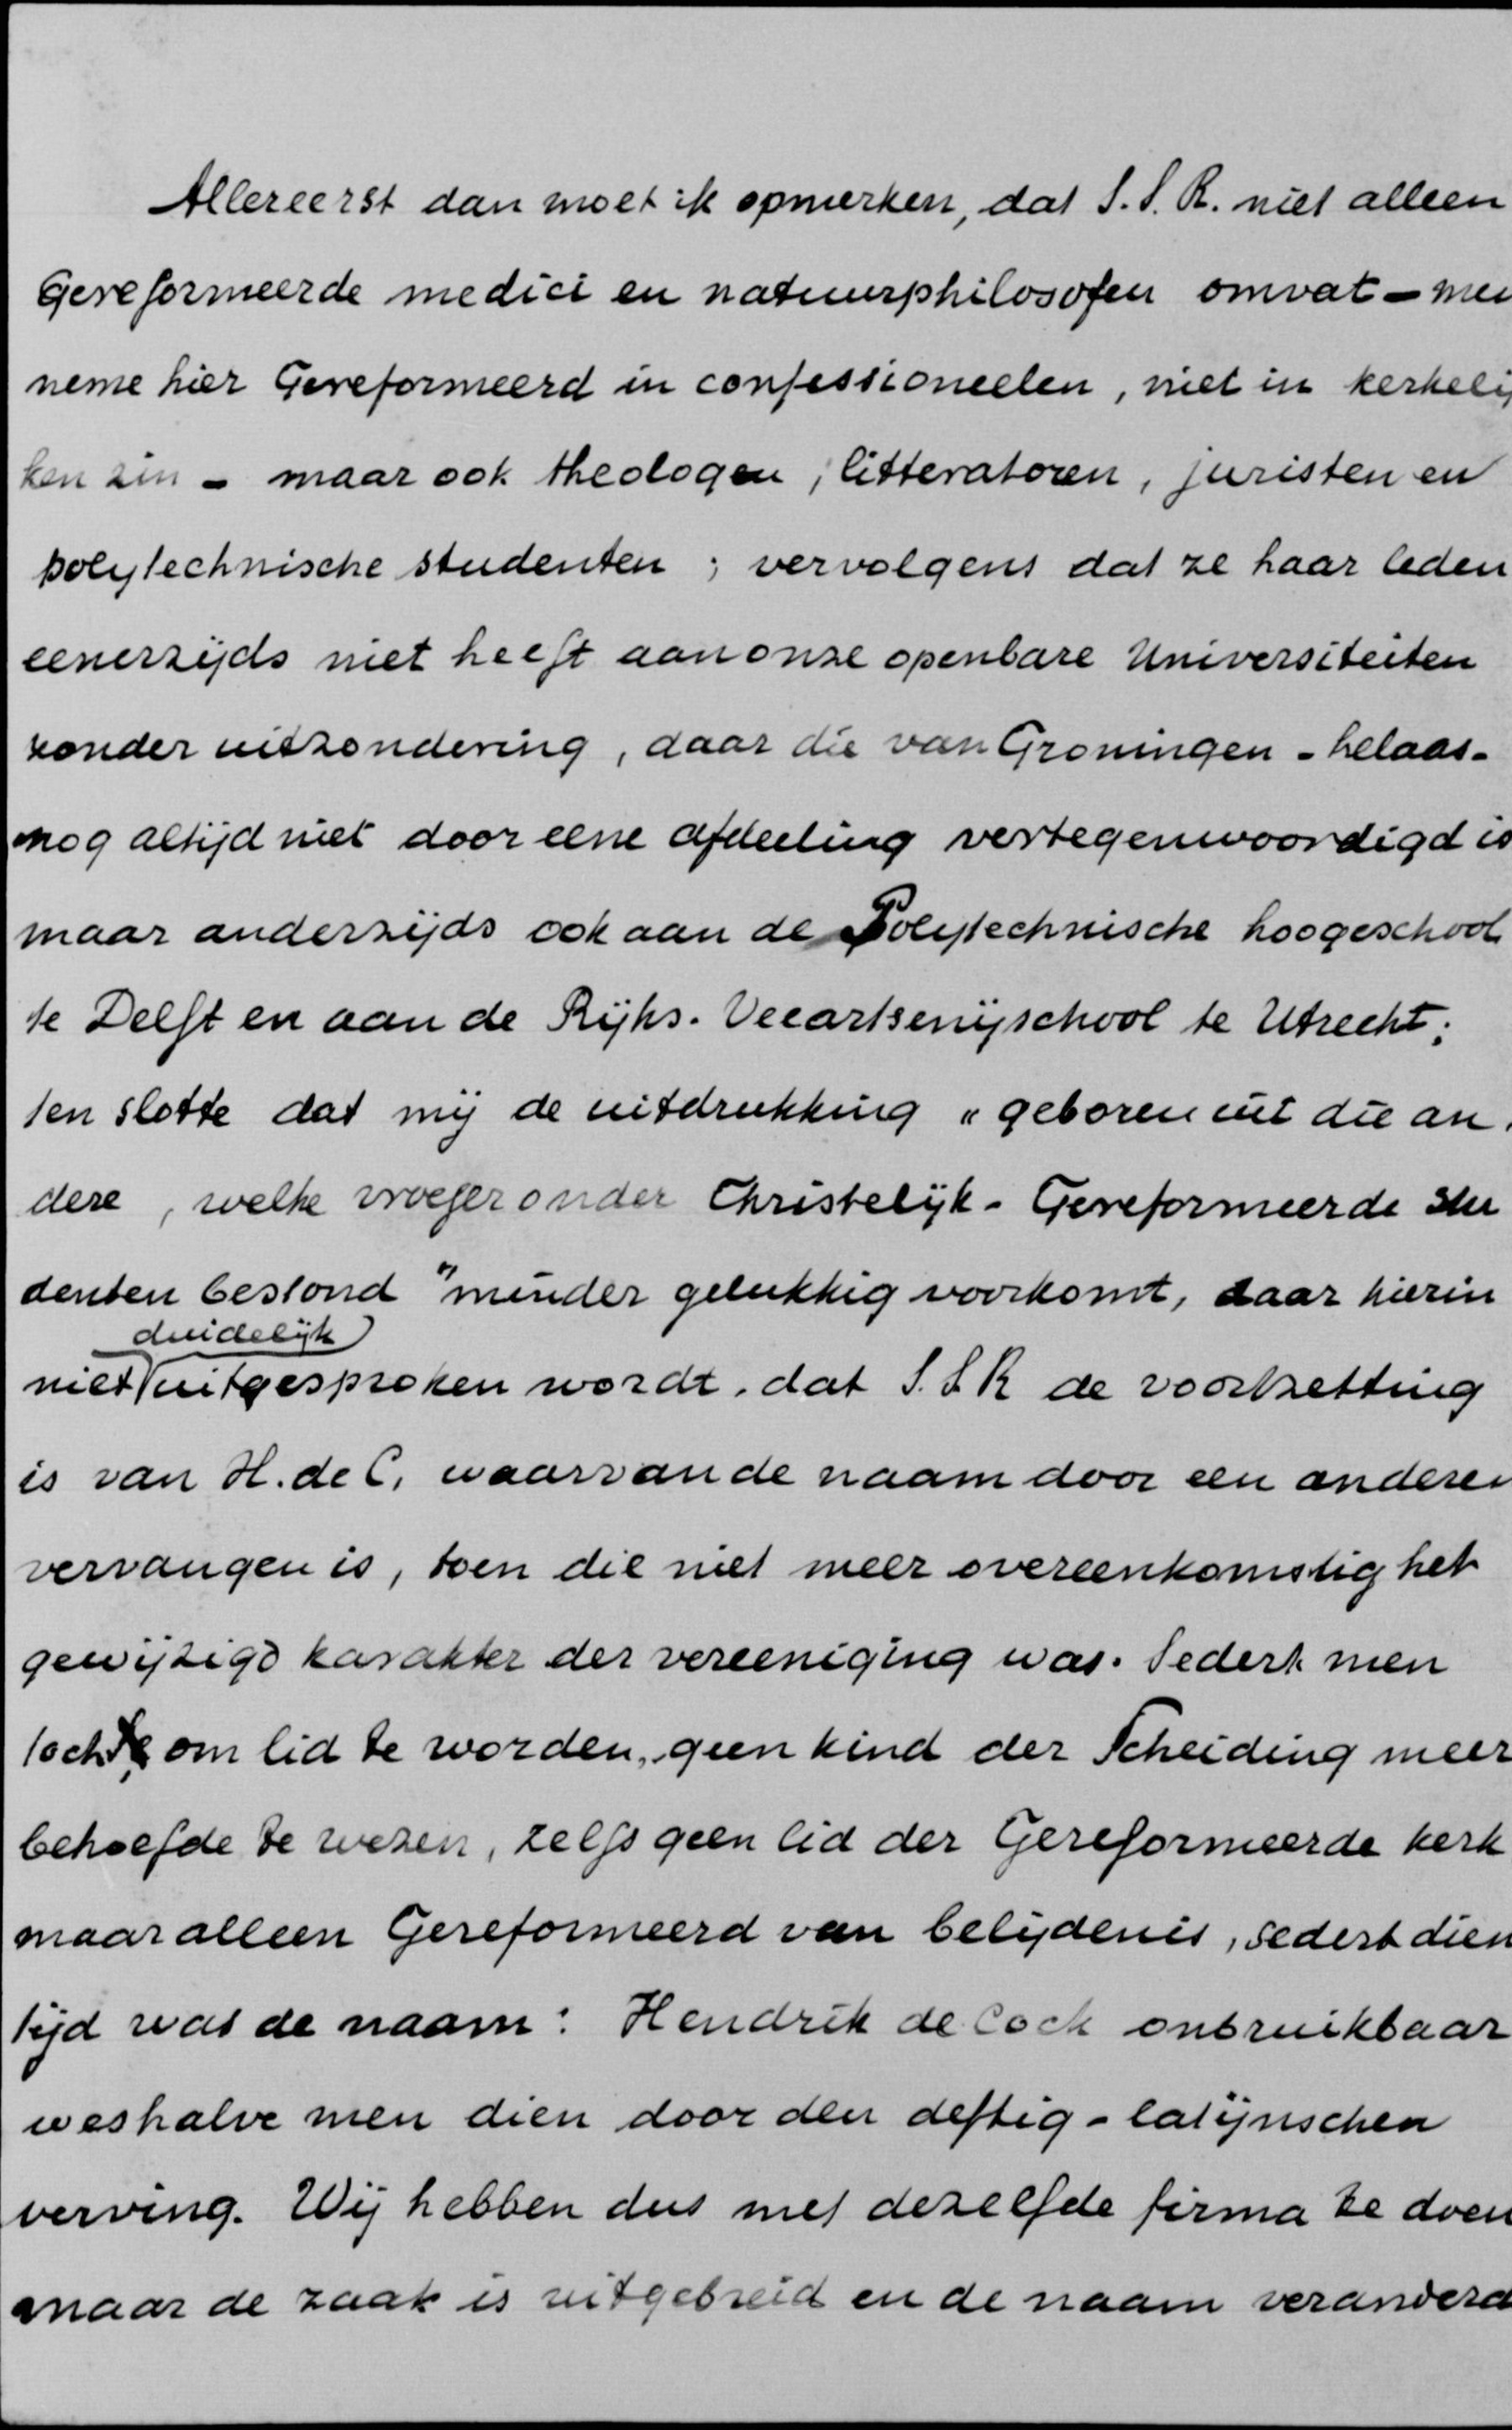 Allereerst dan moet ik opmerken, dat S.S.R. niet alleen
Gereformeerde medici en natuurphilosofen omvat - men
neme hier Gereformeerd in confessioneelen, niet in kerkelij
ken zin - maar ook theologen, litteratoren, juristen en
polytechnische studenten ; vervolgens dat ze haar leden
eenerzijds niet heeft aan onze openbare Universiteiten
zonder uitzondering, daar die van Groningen - helaas -
nog altijd niet door eene afdeeling vertegenwoordigd is
maar anderzijds ook aan de Polytechnische hoogeschool
te Delft en aan de Rijks-Veeartsenijschool te Utrecht;
ten slotte dat mij de uitdrukking „geboren uit die an-
dere, welke vroeger onder Christelijk-Gereformeerde stu
denten bestond" minder gelukkig voorkomt, daar hierin
duidelijk
niet uitgesproken wordt, dat S.S.R de voortzetting
is van H. de C. waarvan de naam door een anderen
vervangen is, toen die niet meer overeenkomstig het
gewijzigd karakter der vereeniging was. Sedert men
toch om lid te worden, geen kind der Scheiding meer
behoefde te wezen, zelfs geen lid der Gereformeerde kerk
maar alleen Gereformeerd van belijdenis, sedert dien
tijd was de naam: Hendrik de Cock onbruikbaar
weshalve men dien door den deftig-latijnschen
verving. Wij hebben dus met dezelfde firma te doen
maar de zaak is uitgebreid en de naam veranderd